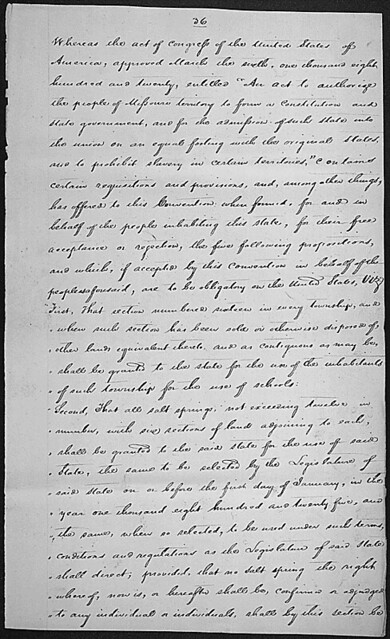 36
Whereas the act of Congress of the United States of
America, approved March the sixth, one thousand eight
hundred and twenty, entitled "An act to authorize
the people of Missouri territory to form a Constitution and
state government, and for the admission of such state into
the union on an equal footing with the original states,
and to prohibit slavery in certain territories," contains
certain requisitions and provisions, and, among other things,
has offered to this Convention when formed, for and in
behalf of the people inhabiting this state, for their free
acceptance or rejection, the five following propositions,
and which, if accepted by this Convention in behalf of the
people aforesaid, are to be obligatory on the United States, Viz;
First, That section numbered sixteen in every township, and
when such section has been sold or otherwise disposed of,
other lands equivalent thereto, and as contiguous as may be,
shall be granted to the state for the use of the inhabitants
of such township for the use of schools:
Second, That all salt springs, not exceeding twelve in
number, with six sections of land adjoining to each,
shall be granted to the said state for the use of said
State, the same to be selected by the Legislature of
said state on or before the first day of January, in the
year one thousand eight hundred and twenty five, and
the same, when so selected, to be used under such terms,
conditions and regulations as the Legislature of said State
shall direct; provided, that no salt spring the right
whereof, now is, or hereafter shall be, confirmed or adjudged
to any individual or individuals, shall by this section be